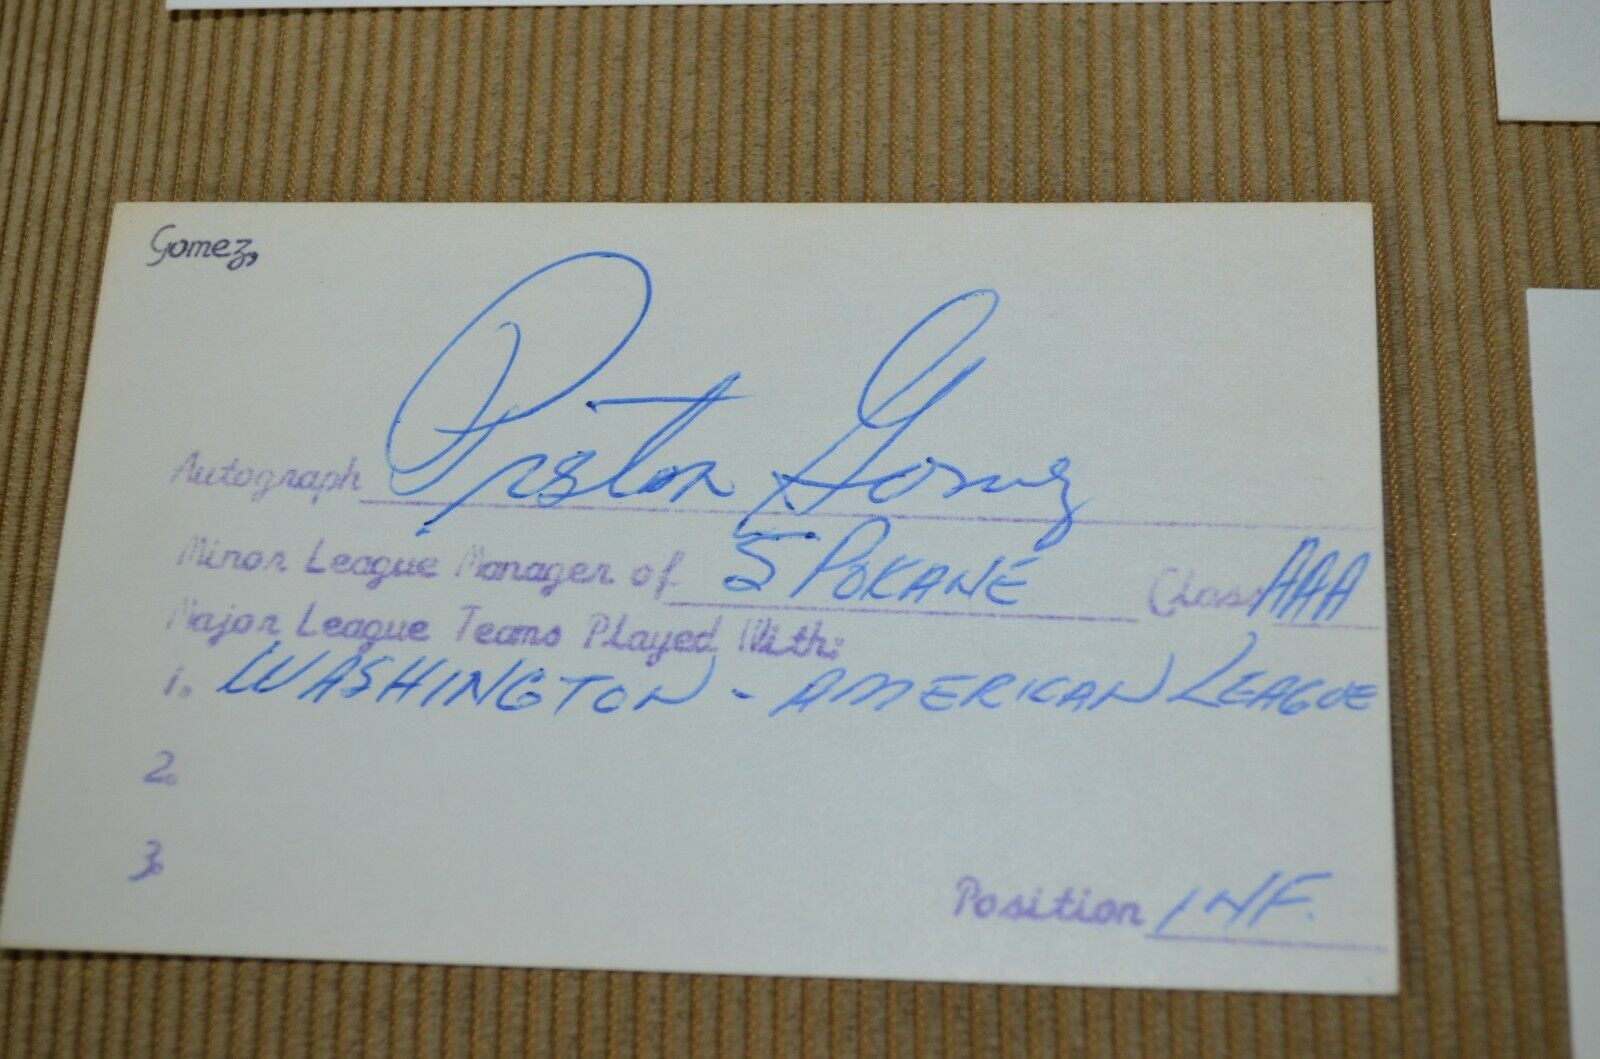 Gomez,
Autograph Preston Gomez
Minor League Manager of SPOKANE Class AAA
Major League Teams Played With:
1. WASHINGTON - AMERICAN LEAGUE
2.
3.
Position INF.